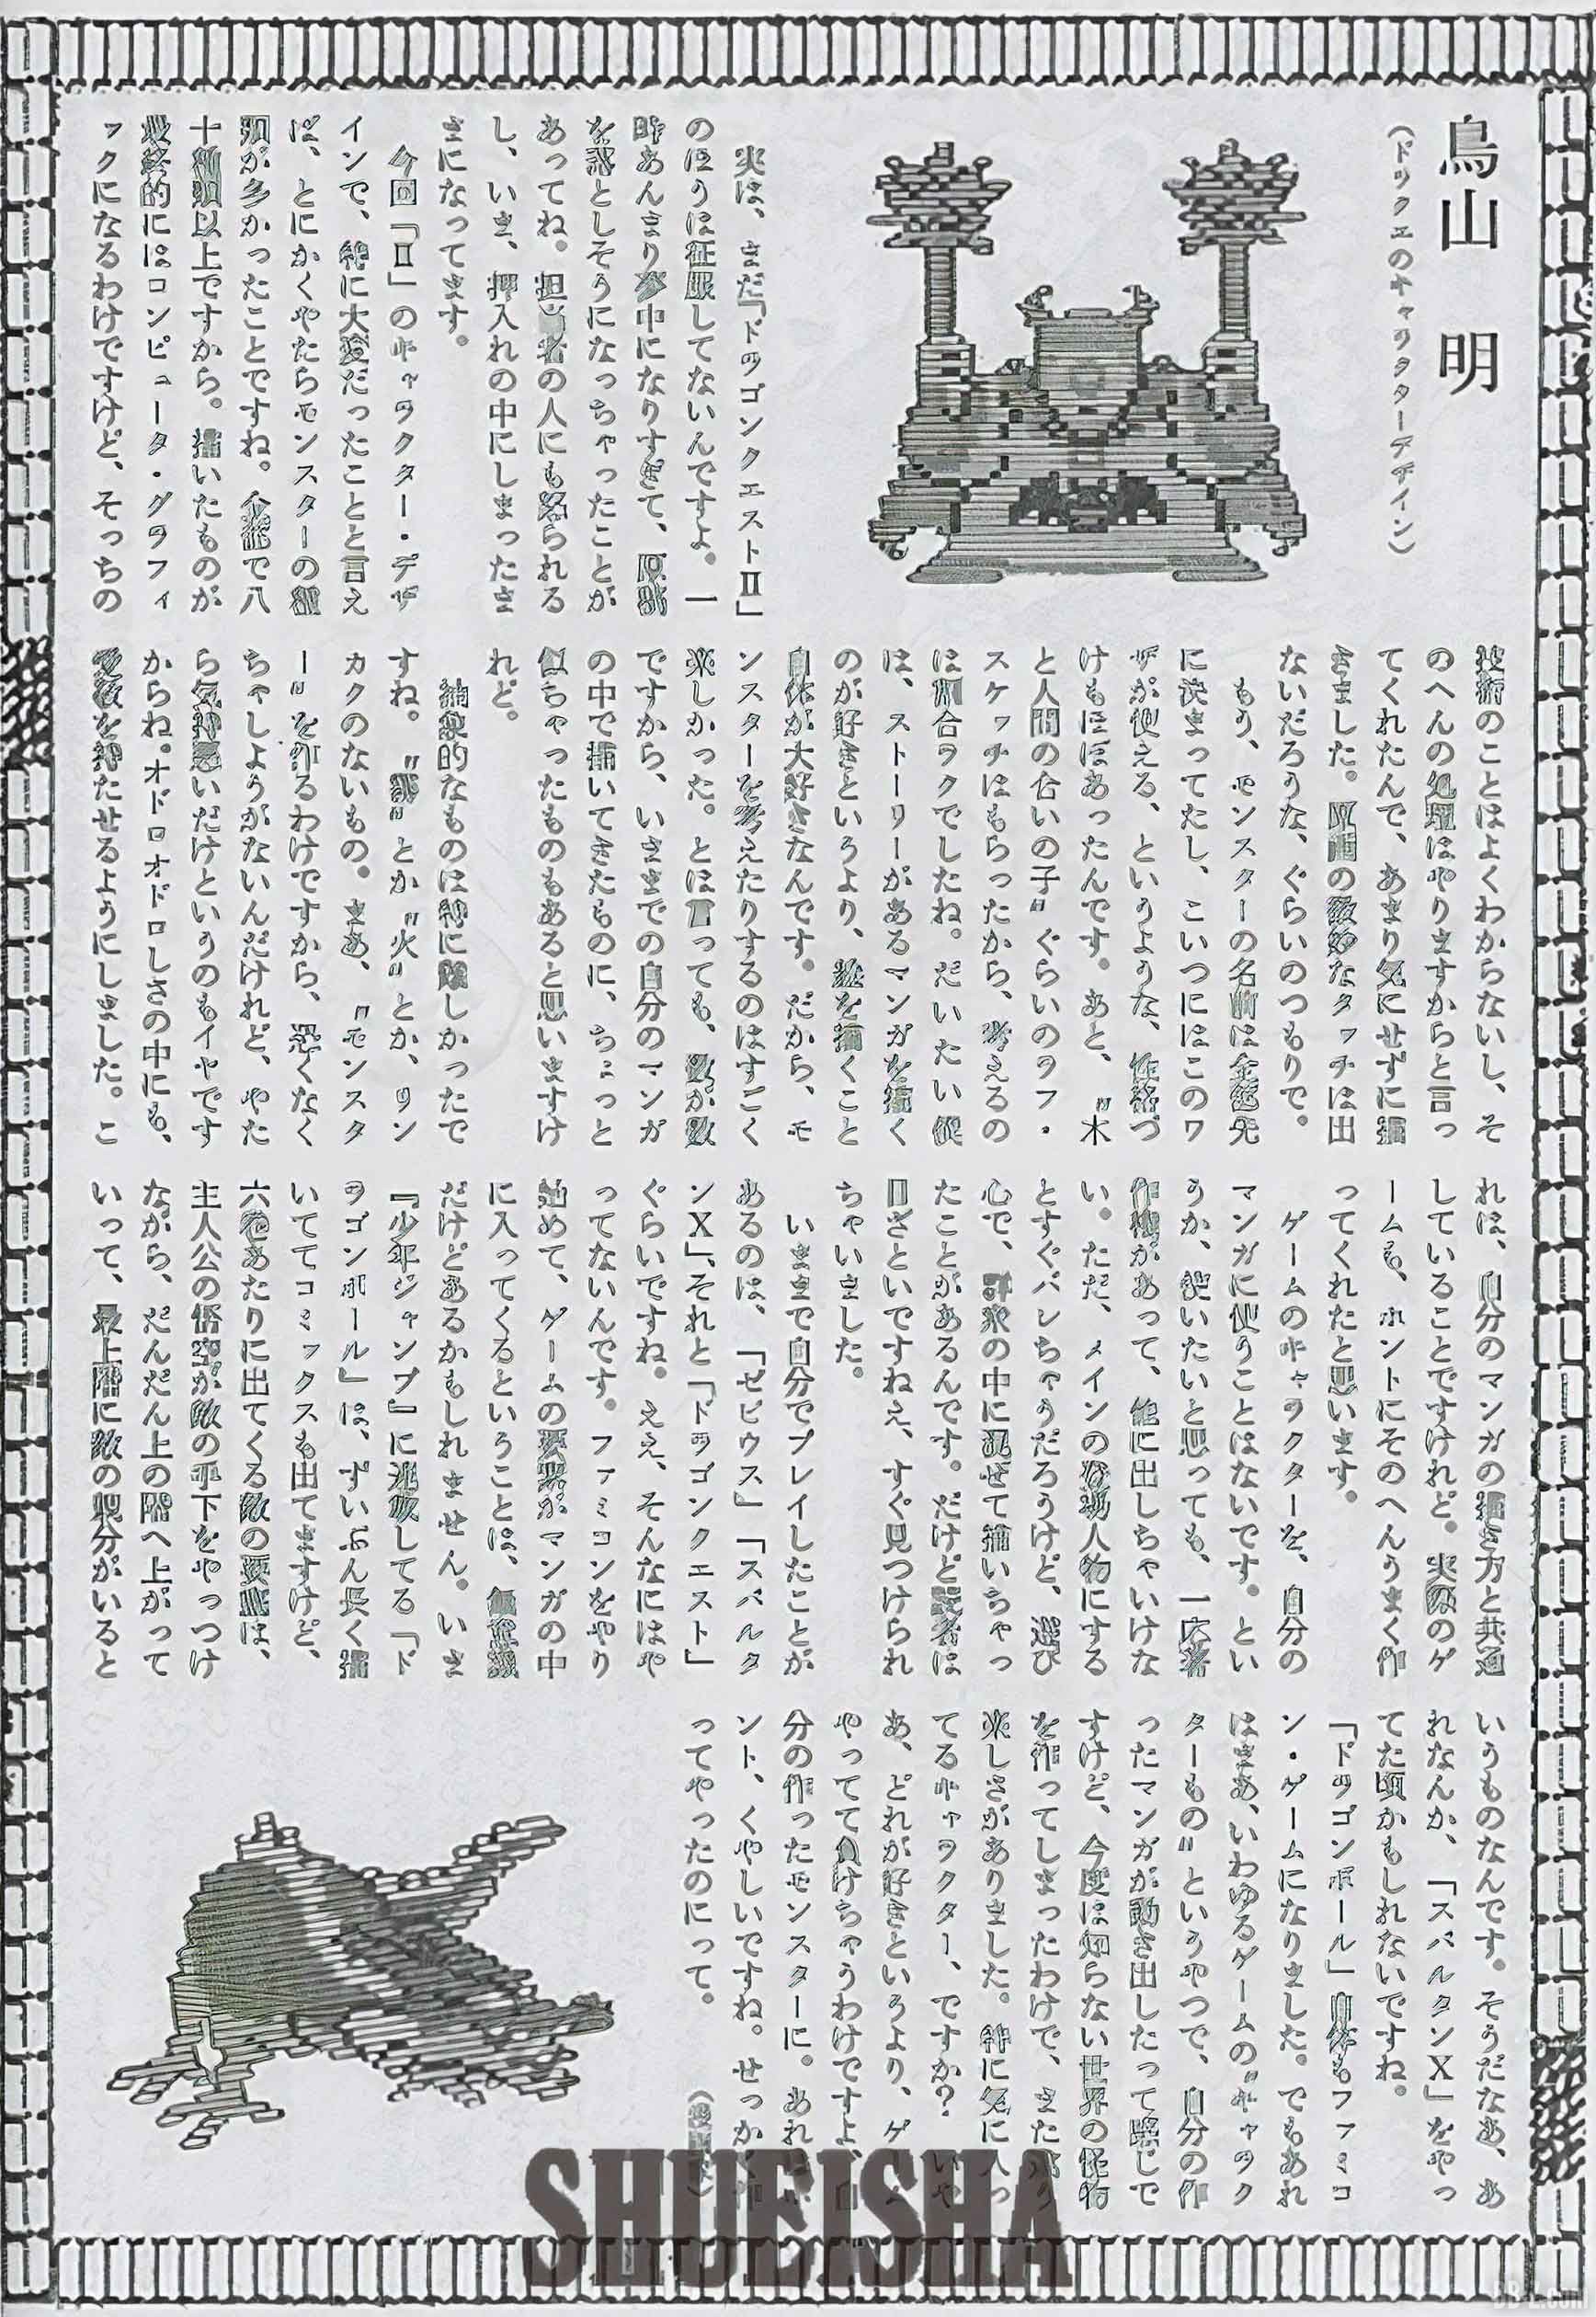 鳥山 明
(ドラクエのキャラクターデザイン)
実は、まだ「ドラゴンクエストⅡ」
のほうは征服してないんですよ。一
昨あんまり夢中になりすぎて、原稿
を落としそうになっちゃったことが
あってね。担当者の人にも怒られる
し、いま、押入れの中にしまったま
まになってます。
今回「Ⅱ」のキャラクター・デザ
インで、特に大変だったことと言え
ば、とにかくやたらモンスターの種
類が多かったことですね。全部で八
十種類以上ですから。描いたものが
最終的にはコンピュータ・グラフィ
ックになるわけですけど、そっちの
技術のことはよくわからないし、そ
のへんの処理はやりますからと言っ
てくれたんで、あまり気にせずに描
きました。原画の微妙なタッチは出
ないだろうな、ぐらいのつもりで。
もう、モンスターの名前は全部先
に決まってたし、こいつにはこのワ
ザが使える、というような、性格づ
けもほぼあったんです。あと、〝木
と人間の合いの子〟ぐらいのラフ・
スケッチはもらったから、考えるの
は割合ラクでしたね。だいたい僕
は、ストーリーがあるマンガを描く
のが好きというより、絵を描くこと
自体が大好きなんです。だから、モ
ンスターを考えたりするのはすごく
楽しかった。とは言っても、数が数
ですから、いままでの自分のマンガ
の中で描いてきたものに、ちょっと
似ちゃったものもあると思いますけ
れど。
抽象的なものは特に難しかったで
すね。〝霧〟とか〝火〟とか、リン
カクのないもの。まあ、〝モンスタ
ー〟を作るわけですから、恐くなく
ちゃしようがないんだけれど、やた
ら気持悪いだけというのもイヤです
からね。オドロオドロしさの中にも、
愛敬を持たせるようにしました。こ
れは、自分のマンガの描き方と共通
していることですけれど。実際のゲ
ームも、ホントにそのへんうまく作
ってくれたと思います。
ゲームのキャラクターを、自分の
マンガに使うことはないです。とい
うか、使いたいと思っても、一応著
作権があって、他に出しちゃいけな
い。ただ、メインの登場人物にする
とすぐバレちゃうだろうけど、遊び
心で、群衆の中に混ぜて描いちゃっ
たことがあるんです。だけど読者は
目ざといですねえ、すぐ見つけられ
ちゃいました。
いままで自分でプレイしたことが
あるのは、「ゼビウス」「スパルタ
ンX」、それと「ドラゴンクエスト」
ぐらいですね。ええ、そんなにはや
ってないんです。ファミコンをやり
始めて、ゲームの要素がマンガの中
に入ってくるということは、無意識
だけどあるかもしれません。いま
『少年ジャンプ』に連載してる「ド
ラゴンボール」は、ずいぶん長く描
いててコミックスも出てますけど、
六巻あたりに出てくる敵の要塞は、
主人公の悟空が敵の手下をやっつけ
ながら、だんだん上の階へ上がって
いって、最上階に敵の親分がいると
いうものなんです。そうだなあ、あ
れなんか、「スパルタンX」をやっ
てた頃かもしれないですね。
「ドラゴンボール」自体もファミコ
ン・ゲームになりました。でもあれ
はまあ、いわゆるゲームの〝キャラク
ターもの〟というやつで、自分の作
ったマンガが動き出したって感じで
すけど、今度は知らない世界の怪物
を作ってしまったわけで、また違う
楽しさがありました。特に気に入っ
てるキャラクター、ですか? いや
あ、どれが好きというより、ゲーム
やってて負けちゃうわけですよ、自
分の作ったモンスターに。あれはホ
ント、くやしいですね。せっかく作
ってやったのにって。
SHUEISHA
DB-Z.com